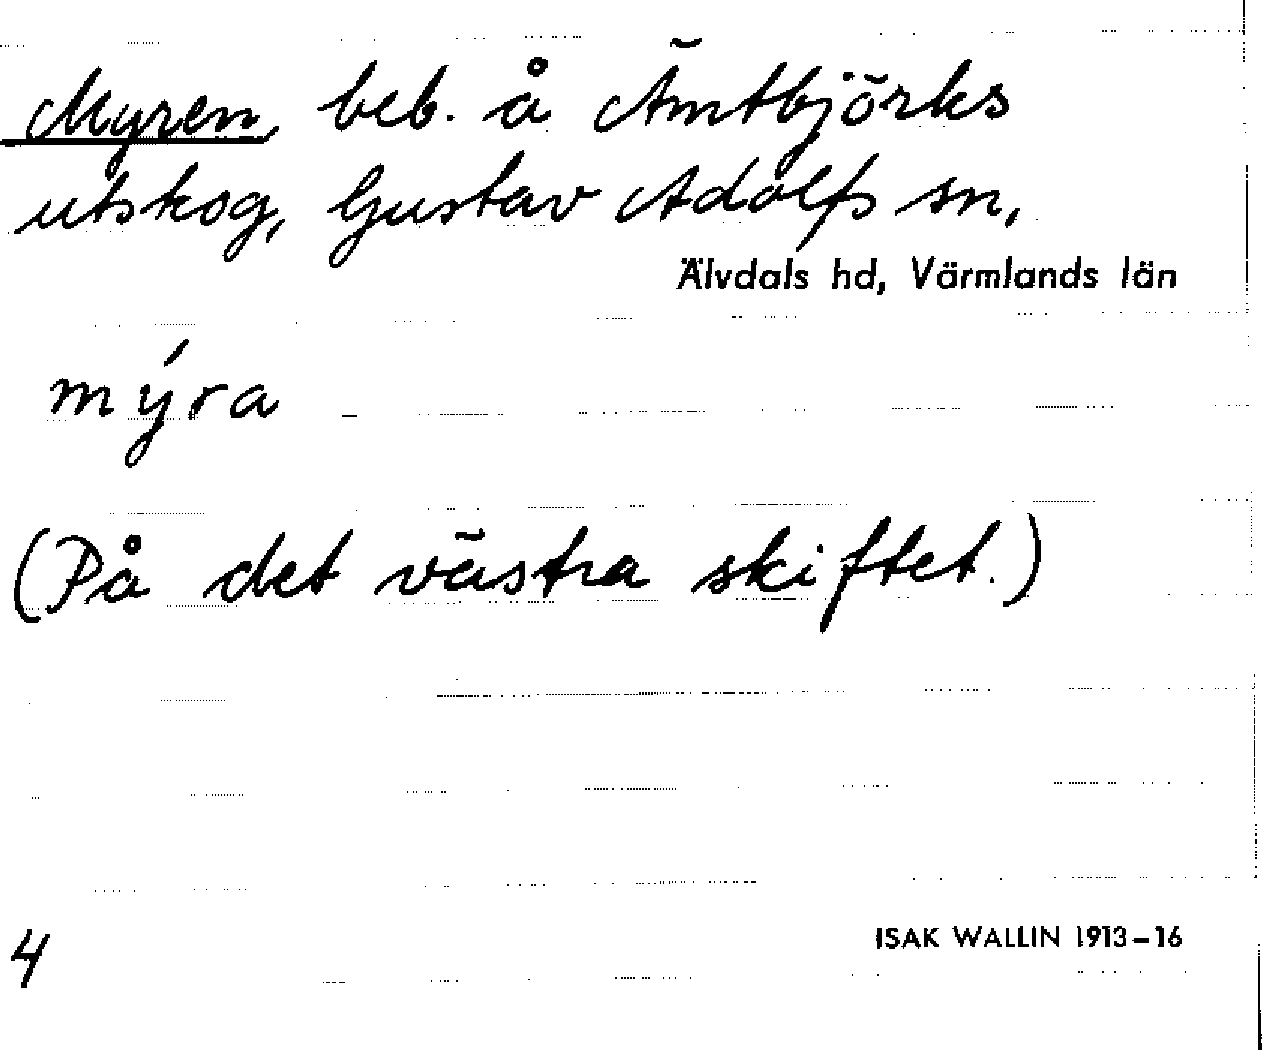 Myren, beb. å Ämtbjörks
utskog, Gustav Adolfs sn,
Älvdals hd, Värmlands län
mýra
(På det västra skiftet.)
4
ISAK WALLIN 1913-16